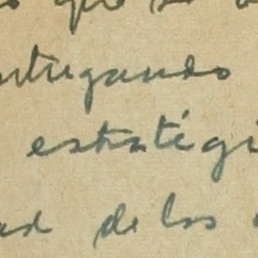 que se
ntregando
estratégi
ad de los